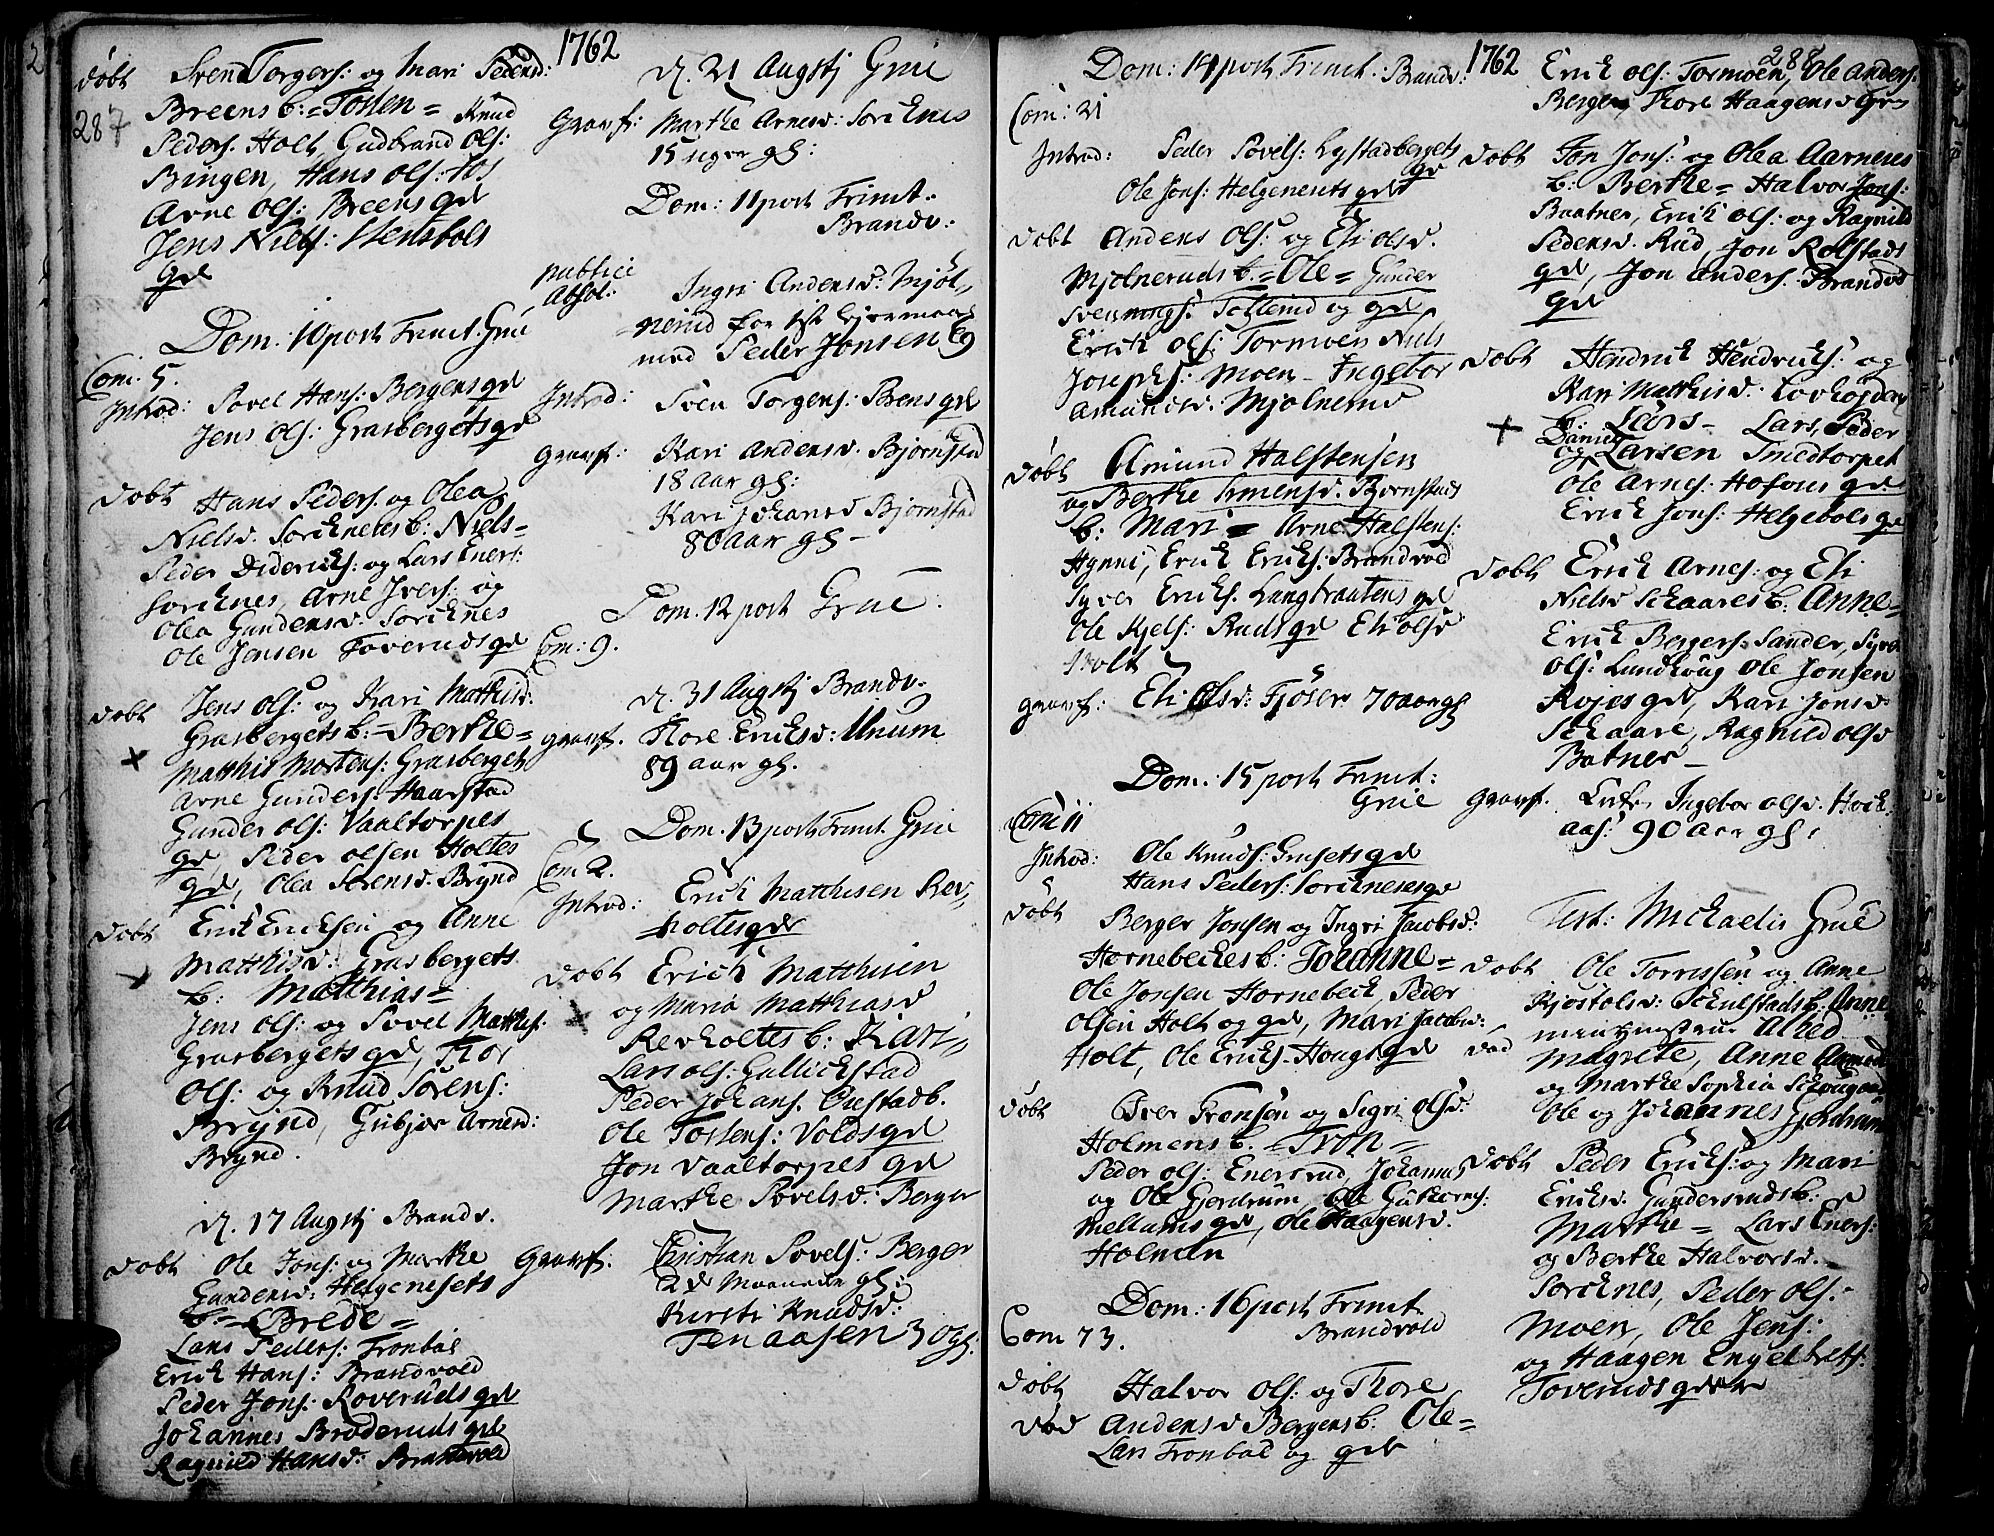 1762
287
døbt Svend Torgers: og Mari Pedersd:
Breens b: = Tosten = Knud
Peders. Holt, Gudbrand Ols:
Bingen, Hans Ols:
Arne Ols: Breens gd
Jens Niels: Stensbøls
gd
Dom. 10 post Trinit. Grue
Com. 5.
Introd: Povel Hans: Bergens gd
Jens Ols: Grasbergets gd
døbt Hans Peders. og Olea
Nielsd. Sorknetes b: Niels =
Peder Dideriks: og Lars Eners:
Sorknes, Arne Ivers: og
Olea Gundersd. Sorknes
Ole Jensen Toverudsgd
døbt Jens Ols: og Kari Mathisd:
Grasbergets b: = Berthe =
Matthis Mortens: Grasberget
Arne Gunders: Haarstad
Gunder Ols: Vaaltorpes
gd, Peder Olsen Holtes
gd, Olea Sørensd. Brynd
døbt Erik Ericksen og Anne
Matthisd: Grasbergets
b: Matthias =
Jens Ols: og Povel Mathis:
Grasbergets gd, Thor
Ols: og Knud Sørens:
Brynd, Gubjør Arnesd:
Brynd.
d. 17 Augstj Brandv.
døbt Ole Jons: og Marthe
Gundersd: Helgenesets
b = Brede =
Lars Peders: Tronbøl
Erick Hans: Brandvold
Peder Jons: Roveruds gd
Johannes Brøderuds gd
Ragnild Hansd: Brandvold
d. 21 Augstj Grue
Gravf: Marthe Arnesd: Sorknes
15 uger gl:
Dom: 11 post Trinit.
Brandv:
publici
Absol: Ingri Andersd: Mjøl-
nerud for 1ste Lejermaal
med Peder Jonsen Eg
Introd: Sven Torgers: Brens gd
Gravf: Kari Andersd. Bjørnstad
18 aar gl:
Kari Johansd Bjørnstad
80 aar gl -
Dom. 12 post Grue.
Com: 9.
d. 31 Augstj Brandv.
gravf. Thore Ericksd: Unum
89 aar gl.
Dom. 13 post Trinit. Grue
Com 2.
Introd: Erick Matthisen Rev-
holtes gd
døbt Erick Matthisen
og Maria Matthiasd
Revholtes b: Kari
Lars Ols: Gullickstad
Peder Johans.
Ole Tostens: Volds gd
Jon Vaaltorpes gd
Marthe Povelsd: Berger
Gravf. Christian Povels: Berger
2 Maaneder gl:
Kirsti Knudsd:
Tenaasen 30 gl:
Dom: 14 post Trinit. Brandv: 1762
288
Com: 21
Introd: Peder Povels: Lystadbergets
gd
Ole Jons: Helgenesets gd
døbt Anders Ols: og Eli Olsd.
Mjølneruds b = Ole = Gunder
Svennings: Totterud og gd
Erick Ols: Tormoen Niels
Josephs: Moen - Ingebor
Amundsd. Mjølnerud
døbt Amund Halstensen
og Berthe Simensd. Bjørnstads
b: Mari = Arne Halstens:
Hynni, Erick Ericks: Brandvold
Syver Ericks. Langbraatens gd
Ole Kjels: Ruds gd Eli Olsd
Holt
gravf: Eli Olsd: Fjøser 70 aar gl
Dom: 15 post Trinit:
Grue
Com 11
Introd: Ole Knuds: Grusets gd
Hans Peders: Sorknes gd
døbt Berger Jonsen og Ingri Jacobsd:
Hornebeckes b: Johanne =
Ole Jonsen Hornebeck, Peder
Olsen Holt og gd, Mari Jacobsd:
Holt, Ole Ericks. Hougs gd
døbt Iver Tronsøn og Sigri Olsd:
Holmens b. = Tron =
Peder Ols: Enersrud, Johannes
og Ole Gjerdrum, Ole Guthorms:
Mellums gd, Ole Haagensd.
Holmen
Dom: 16 post Trinit.
Brandvold
Com 73.
døbt Halvor Ols: og Thore
død Andersd Bergens b: Ole =
Lars Tronbøl og gd
Erick Ols: Tormoen, Ole Anders:
Berger, Thore Haagensd
døbt Jon Jons: og Olea Aarneses
b: Berthe = Halvor Jons:
Baatner, Erick Ols: og Ragnild
Pedersd. Rud, Jon Rolstads
gd, Jon Anders. Brandvol
gd
døbt Hendrick Hendricks: og
Kari Matthisd: Lovhøjden
b: Lars - Lars, Peder
Daniel
og Larsen Smedtorpet
Ole Arnes: Hofous gd
Erick Jons: Helgebøls gd
døbt Erick Arnes: og Eli
Nielsd Schaares b: Anne =
Erick Bergers: Sander, Syver
Ols: Lundhoug Ole Jonsen
Rojes gd, Kari Jonsd
Schaare, Ragnild Olsd
Botner -
gravf. Ingebor Olsd. Hock-
aas: 90 aar gl:
Fest: Michaelis Grue
døbt Ole Torressen og Anne
Kjøstolsd: Schulstads b: Anne
død Alhed
Magrete, Anne
og Marthe Sophia Schougaard
Ole og Johannes Gjerdrum
døbt Peder Ericks: og Mari
Ericksd. Gundersruds b:
Marthe = Lars Eners:
og Berthe Halvorsd.
Sorknes, Peder Ols:
Moen, Ole Jens:
og Haagen Engelbrets:
Toveruds gd